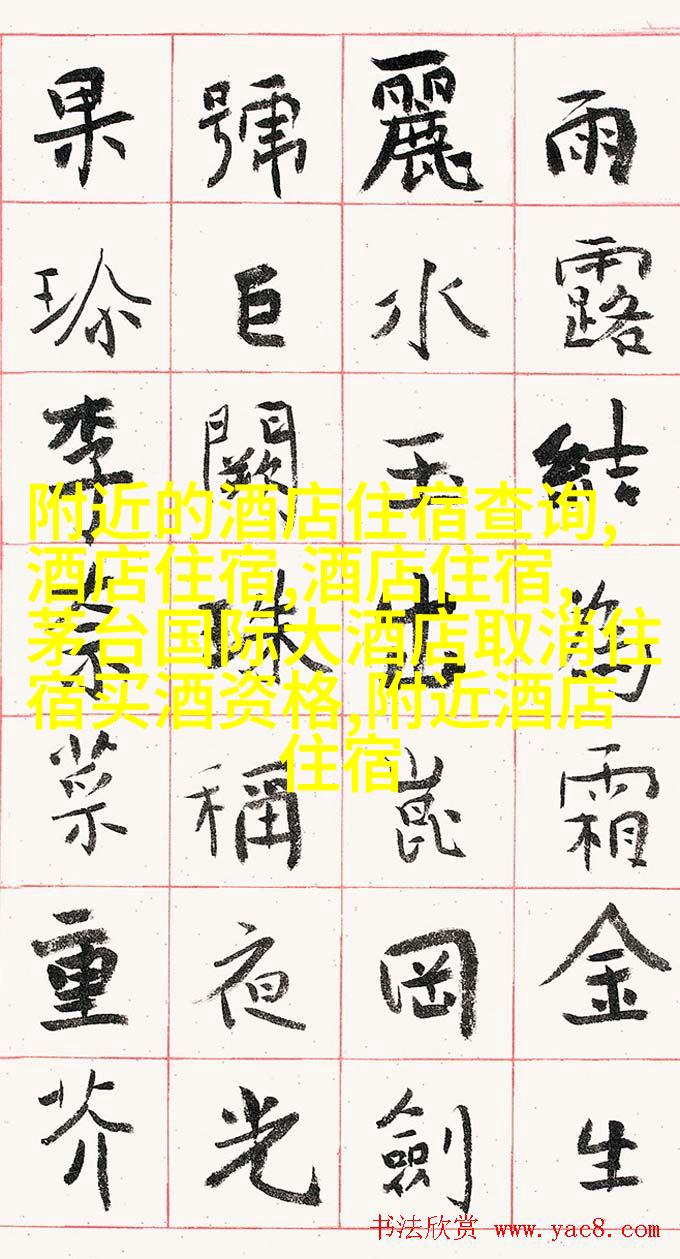 雨露結為霜金生
麗水玉出崑岡劍
號巨闕珠稱夜光
果珍李柰菜重芥
附近的酒店住宿查询,
酒店住宿,酒店住宿,
茅台国际大酒店取消住
宿买酒资格,附近酒店
住宿
书法欣赏 www.yac8.com